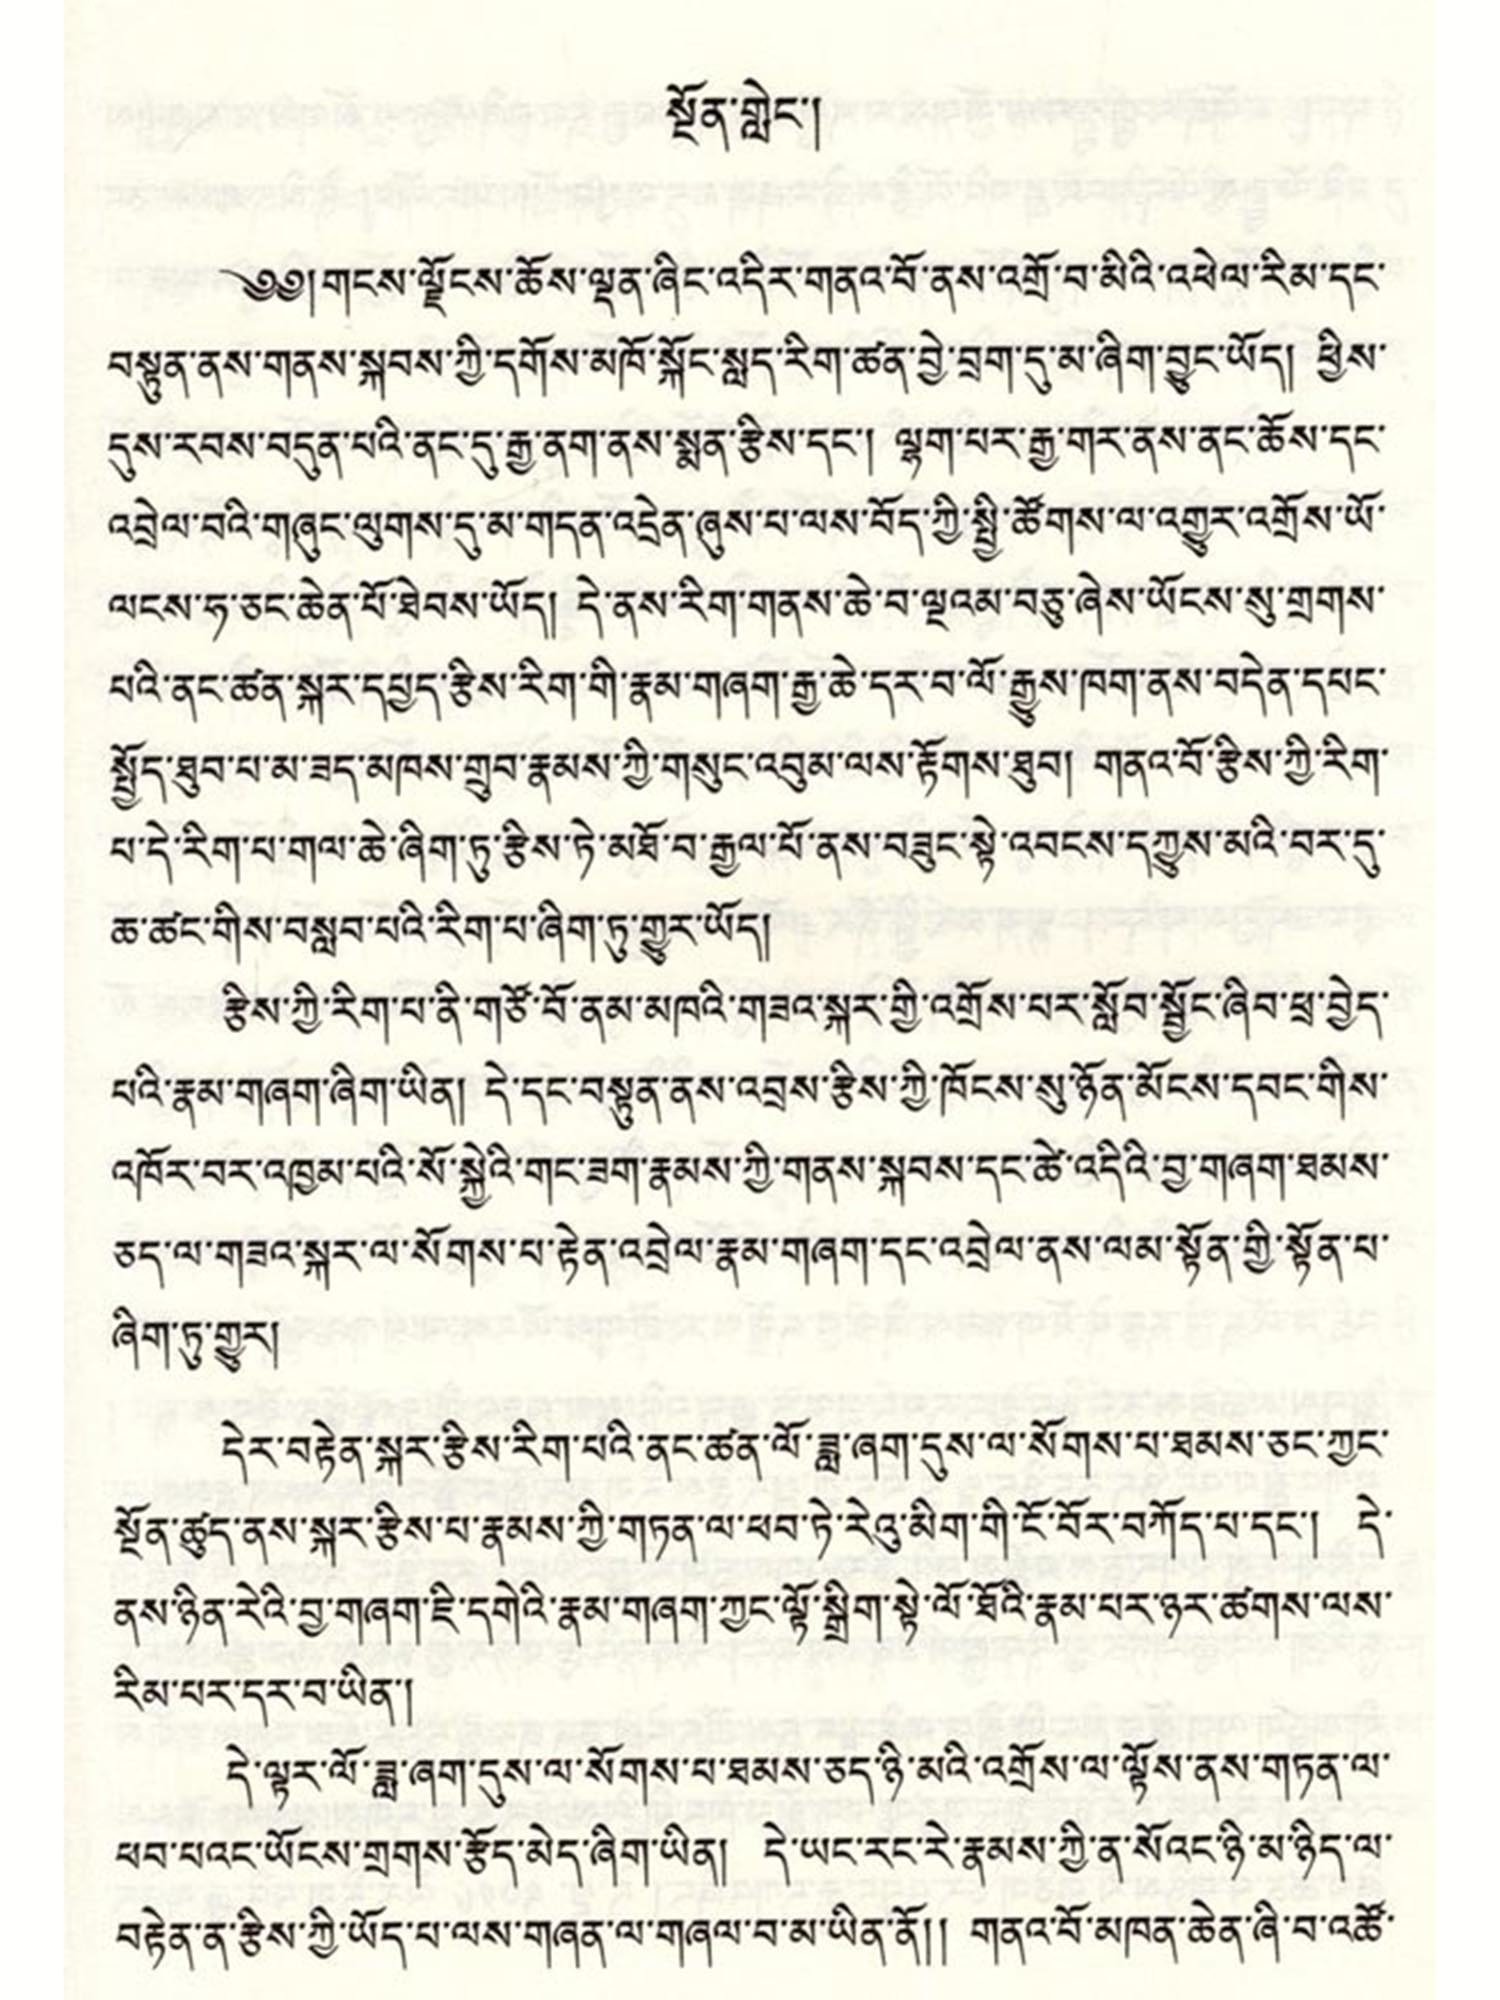 སྔོན་གླེང་།
༄༅།གངས་ལྗོངས་ཆོས་ལྡན་ཞིང་འདིར་གནའ་བོ་ནས་འགྲོ་བ་མིའི་འཕེལ་རིམ་དང་
བསྟུན་ནས་གནས་སྐབས་ཀྱི་དགོས་མཁོ་སྐོང་སླད་རིག་ཚན་བྱེ་བྲག་དུ་མ་ཞིག་བྱུང་ཡོད། ཕྱིས་
དུས་རབས་བདུན་པའི་ནང་དུ་རྒྱ་ནག་ནས་སྨན་རྩིས་དང་། ལྷག་པར་རྒྱ་གར་ནས་ནང་ཆོས་དང་
འབྲེལ་བའི་གཞུང་ལུགས་དུ་མ་གདན་འདྲེན་ཞུས་པ་ལས་བོད་ཀྱི་སྤྱི་ཚོགས་ལ་འགྱུར་འགྲོས་ཡོ་
ལངས་ཧ་ཅང་ཆེན་པོ་ཐེབས་ཡོད། དེ་ནས་རིག་གནས་ཆེ་བ་ལྔའམ་བཅུ་ཞེས་ཡོངས་སུ་གྲགས་
པའི་ནང་ཚན་སྐར་དཔྱད་རྩིས་རིག་གི་རྣམ་གཞག་རྒྱ་ཆེ་དར་བ་ལོ་རྒྱུས་ཁག་ནས་བདེན་དཔང་
སྤྱོད་ཐུབ་པ་མ་ཟད་མཁས་གྲུབ་རྣམས་ཀྱི་གསུང་འབུམ་ལས་རྟོགས་ཐུབ། གནའ་བོ་རྩིས་ཀྱི་རིག་
པ་དེ་རིག་པ་གལ་ཆེ་ཞིག་ཏུ་རྩིས་ཏེ་མཐོ་བ་རྒྱལ་པོ་ནས་བཟུང་སྟེ་འབངས་དཀྱུས་མའི་བར་དུ་
ཆ་ཚང་གིས་བསླབ་པའི་རིག་པ་ཞིག་ཏུ་གྱུར་ཡོད།
རྩིས་ཀྱི་རིག་པ་ནི་གཙོ་བོ་ནམ་མཁའི་གཟའ་སྐར་གྱི་འགྲོས་པར་སློབ་སྦྱོང་ཞིབ་ཕྲ་བྱེད་
པའི་རྣམ་གཞག་ཞིག་ཡིན། དེ་དང་བསྟུན་ནས་འབྲས་རྩིས་ཀྱི་ཁོངས་སུ་ཉོན་མོངས་དབང་གིས་
འཁོར་བར་འཁྱམ་པའི་སོ་སྐྱེའི་གང་ཟག་རྣམས་ཀྱི་གནས་སྐབས་དང་ཚེ་འདིའི་བྱ་གཞག་ཐམས་
ཅད་ལ་གཟའ་སྐར་ལ་སོགས་པ་རྟེན་འབྲེལ་རྣམ་གཞག་དང་འབྲེལ་ནས་ལམ་སྟོན་གྱི་སྟོན་པ་
ཞིག་ཏུ་གྱུར།
དེར་བརྟེན་སྐར་རྩིས་རིག་པའི་ནང་ཚན་ལོ་ཟླ་ཞག་དུས་ལ་སོགས་པ་ཐམས་ཅང་ཀྱང་
སྔོན་ཚུད་ནས་སྐར་རྩིས་པ་རྣམས་ཀྱི་གཏན་ལ་ཕབ་ཏེ་རེའུ་མིག་གི་ངོ་བོར་བཀོད་པ་དང་། དེ་
ནས་ཉིན་རེའི་བྱ་གཞག་ཇི་དགེའི་རྣམ་གཞག་ཀྱང་ལྟོ་སྒྲིག་སྟེ་ལོ་ཐོའི་རྣམ་པར་ཉར་ཚགས་ལས་
རིམ་པར་དར་བ་ཡིན་།
དེ་ལྟར་ལོ་ཟླ་ཞག་དུས་ལ་སོགས་པ་ཐམས་ཅད་ཉི་མའི་འགྲོས་ལ་ལྟོས་ནས་གཏན་ལ་
ཕབ་པའང་ཡོངས་གྲགས་རྩོད་མེད་ཞིག་ཡིན། དེ་ཡང་རང་རེ་རྣམས་ཀྱི་ན་སོའང་ཉི་མ་ཉིད་ལ་
བརྟེན་ན་རྩིས་ཀྱི་ཡོད་པ་ལས་གཞན་ལ་གཞལ་བ་མ་ཡིན་ནོ།། གནའ་བོ་མཁན་ཆེན་ཞི་བ་འཚོ་